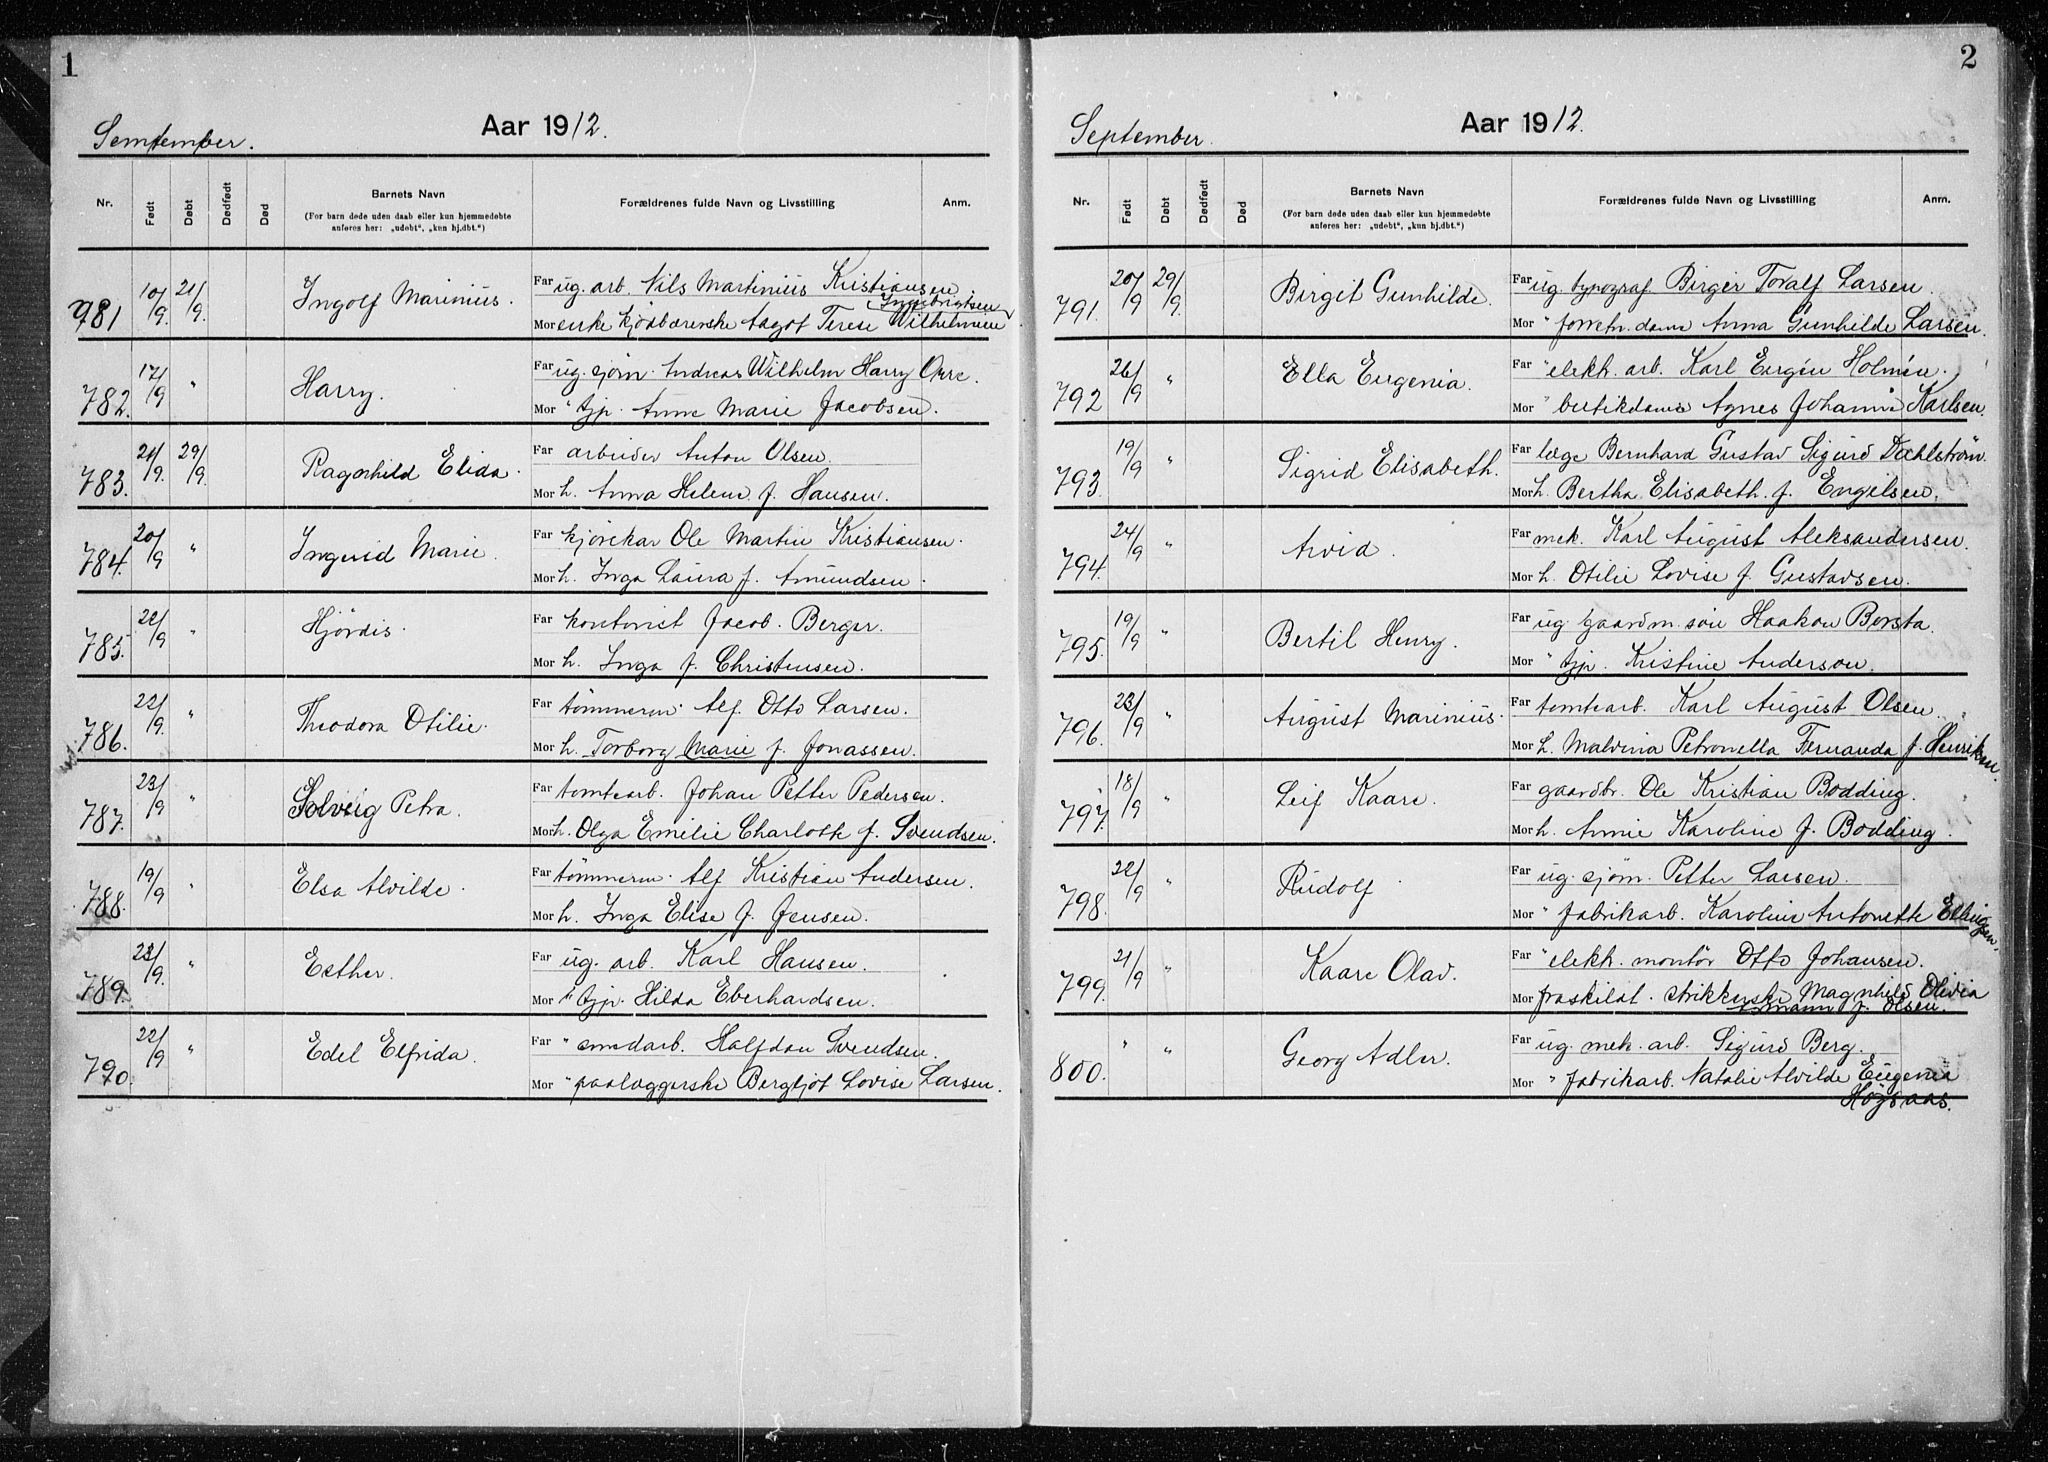 1
Semtember.
Aar 1912.
Nr. Født Døbt Dødfødt Død Barnets Navn Forældrenes fulde Navn og Livsstilling Anm.
(For barn døde uden daab eller kun hjemmedøbte
anføres her: „udøbt“, „kun hj.dbt.“)
781 10/9. 21/9. Ingolf Marinius. Far ug. arb. Nils Martinius Kristiansen
Ingebrigtsen
Mor enke Aagot Terese Wilhelmine
782. 17/9 " Harry. Far ug. sjöm. Andreas Wilhelm Harry
Mor " tjp. Anne Marie Jacobsen.
783. 21/9. 29/9. Ragnhild Elida. Far arbeider Anton Olsen.
Mor h. Anna Helene f. Hansen.
784. 20/9 " Ingerid Marie. Far kjörekar Ole Martin Kristiansen.
Mor h. Inga Laura f. Amundsen.
785. 22/9 " Hjördis. Far kontorist Jacob Berger.
Mor h. Inga f. Christensen.
786. 22/9 " Theodora Otilie. Far tömmerm. Alf Otto Larsen.
Mor h. Torborg Marie f. Jonassen.
787. 23/9 " Solveig Petra. Far tomtearb. Johan Petter Pedersen.
Mor h. Olga Emilie Charlotte f. Svendsen.
788. 19/9 " Elsa Alvilde. Far tömmerm. Alf Kristian Andersen.
Mor h. Inga Elise f. Jensen.
789. 23/9. " Esther. Far ug. arb. Karl Hansen.
Mor " tjp. Hilda Eberhardsen.
790. 22/9 " Edel Elfrida. Far " smedarb. Halfdan Svendsen.
Mor " paalæggerske Bergljot Lovise Larsen.
2
September.
Aar 1912.
Nr. Født Døbt Dødfødt Død Barnets Navn Forældrenes fulde Navn og Livsstilling Anm.
(For barn døde uden daab eller kun hjemmedøbte
anføres her: „udøbt“, „kun hj.dbt.“)
791. 20/9 29/9. Birgit Gunhilde. Far ug. typograf Birger Toralf Larsen.
Mor " forretn. dame Anna Gunhilde Larsen.
792 26/9 " Ella Eugenia. Far " elekk. arb. Karl Eugén Holmén.
Mor " butikdame Agnes Johanne Karlsen.
793. 19/9 " Sigrid Elisabeth. Far læge Bernhard Gustav Sigurd Dæhlström.
Mor h. Bertha Elisabeth. f. Engelsen.
794. 24/9 " Arvid. Far mek. Karl August Aleksandersen.
Mor h. Otilie Lovise f. Gustavsen.
795. 19/9 " Bertil Henry. Far ug. gaardm. sön Haakon Borsta.
Mor " tjp. Kristine Anderson.
796. 23/9 " August Marinius. Far tomtearb. Karl August Olsen.
Mor h. Malvina Petronella Fernanda f. Henriksen.
797. 18/9 " Leif Kaare. Far gaardbr. Ole Kristian Bodding.
Mor h. Annie Karoline f. Bodding.
798. 22/9 " Rudolf Far ug. sjöm. Petter Larsen.
Mor " fabrikarb. Karoline Antonette Ellingsen.
799. 21/9 " Kaare Olav. Far " elekk. montör Otto Johansen.
Mor fraskilat. strikkerske Magnhild Olivia
f. Olsen.
800. " " Georg Adler. Far ug. mek. arb. Sigurd Berg.
Mor " fabrikarb. Natalie Alvilde Eugenia
Högsaas.